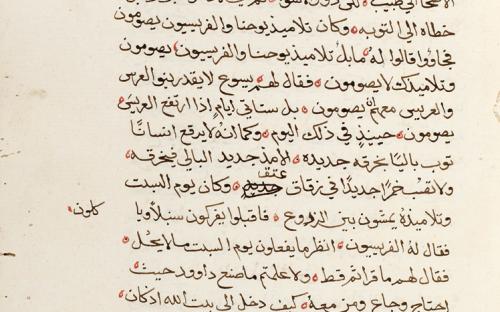 خطاه الى التوبه وكان تلاميذ يوحنا والفريسيون يصومون
فجاووا وقالوا له مابال تلاميذ يوحنا والفريسيون يصومون
وتلاميذك لا يصومون فقال لهم يسوع لا يقدر بنو العرس
والعريس معهم ان يصومون بل ستاتى ايام اذا ارتفع العريس
يصومون حينيذٍ في ذلك اليوم وكما انه لا يرقع انسانًا
توب باليًا بخرقه جديده الامذ جديد البالي فيخرقه
ولا خمرًا جديدًا في زقاق عتق وكان يوم السبت
وتلاميذه يمشون بين الزروع فاقبلوا يفركون سنبلاً ويا
كلون
فقال له الفريسيون انظر ما يفعلون يوم السبت ما لا يحل
فقال لهم ما قراتم قط ولا علمتم ما صنع داوود حيث
احتاج وجاع ومن معه كيف دخل الى بيت الله اذ كان